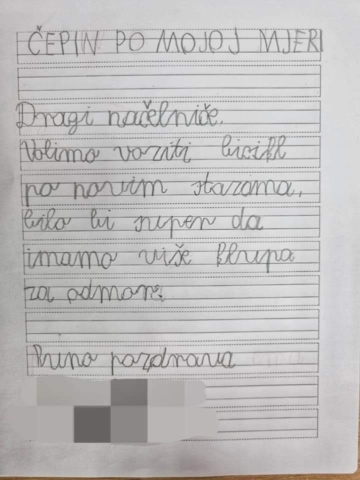 ČEPIN PO MOJOJ MJERI
Dragi načelniče.
Volimo voziti bicikl
po novim stazama,
bilo bi super da
imamo više klupa
za odmor.
Puno pozdrava